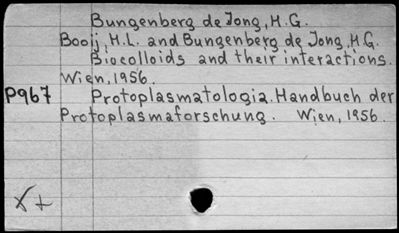 Bungenberg de Jong, H.G.
Booij, H.L. and Bungenberg de Jong, H.G.
Biocolloids and their interactions.
Wien, 1956.
P967 Protoplasmatologia. Handbuch der
Protoplasmaforschung. Wien, 1956.
X+